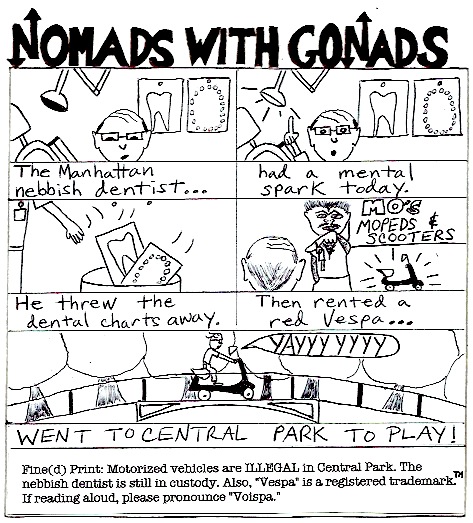 NOMADS WITH GONADS
The Manhattan
nebbish dentist...
had a mental
spark today.
MO'S
MOPEDS &
SCOOTERS
He threw the
dental charts away.
Then rented a
red Vespa...
YAYYYYYYY
WENT TO CENTRAL PARK TO PLAY!
Fine(d) Print: Motorized vehicles are ILLEGAL in Central Park. The
nebbish dentist is still in custody. Also, "Vespa" is a registered trademark.™
If reading aloud, please pronounce "Voispa."